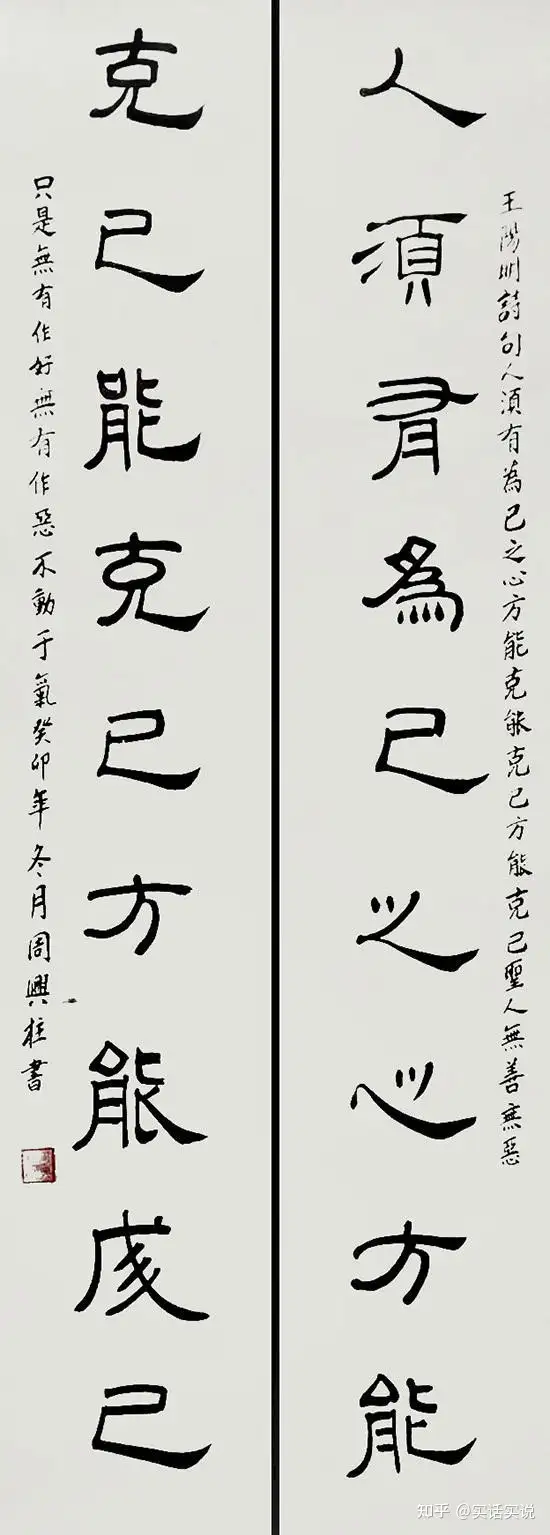 人須有為己之心方能
克己能克己方能成己
王陽明詩句人須有為己之心方能克能克己方能克己聖人無善無惡
只是無有作好無有作惡不動于氣癸卯年冬月周興柱書
知乎 @实话实说